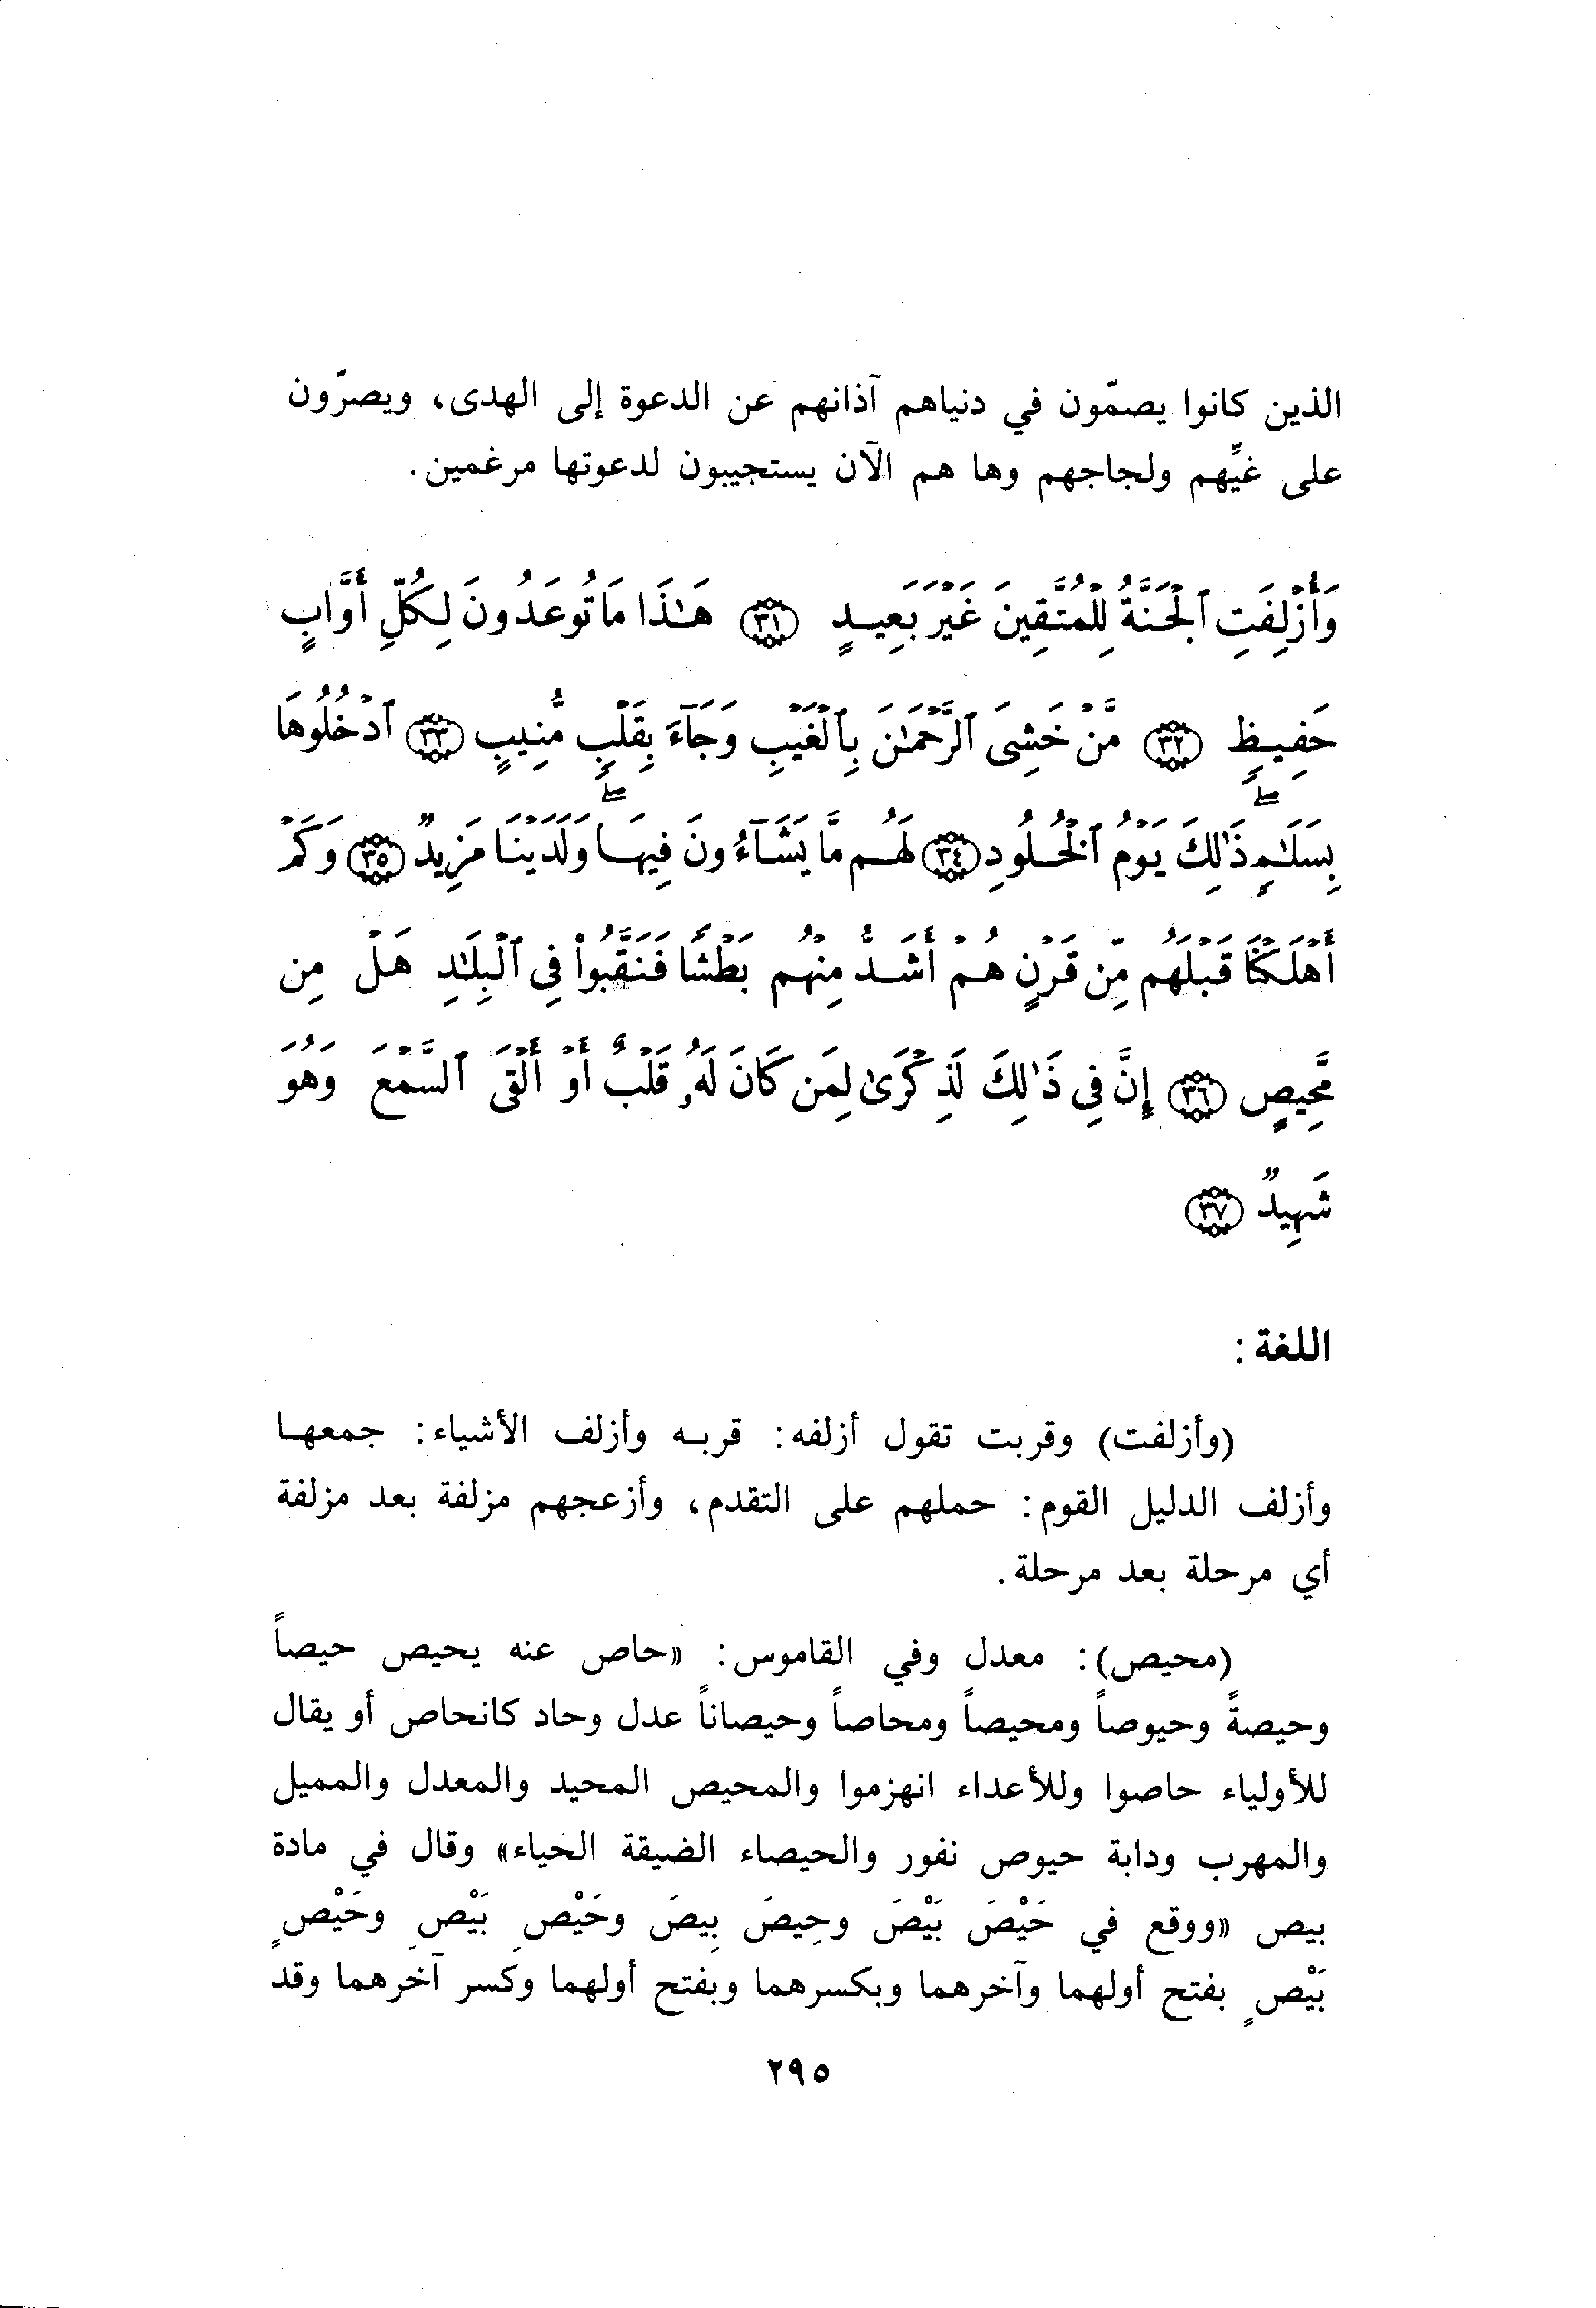 الذين كانوا يصمّون في دنياهم آذانهم عن الدعوة إلى الهدى، ويصرّون
على غيِّهم ولجاجهم وها هم الآن يستجيبون لدعوتها مرغمين.
وَأُزْلِفَتِ ٱلْجَنَّةُ لِلْمُتَّقِينَ غَيْرَ بَعِيدٍ ﴿٣١﴾ هَـٰذَا مَا تُوعَدُونَ لِكُلِّ أَوَّابٍ
حَفِيظٍ ﴿٣٢﴾ مَّنْ خَشِىَ ٱلرَّحْمَـٰنَ بِٱلْغَيْبِ وَجَآءَ بِقَلْبٍ مُّنِيبٍ ﴿٣٣﴾ ٱدْخُلُوهَا
بِسَلَـٰمٍۖ ذَٰلِكَ يَوْمُ ٱلْخُلُودِ ﴿٣٤﴾ لَهُم مَّا يَشَآءُونَ فِيهَاۖ وَلَدَيْنَا مَزِيدٌ ﴿٣٥﴾ وَكَمْ
أَهْلَكْنَا قَبْلَهُم مِّن قَرْنٍ هُمْ أَشَدُّ مِنْهُم بَطْشًا فَنَقَّبُوا۟ فِى ٱلْبِلَـٰدِ هَلْ مِن
مَّحِيصٍ ﴿٣٦﴾ إِنَّ فِى ذَٰلِكَ لَذِكْرَىٰ لِمَن كَانَ لَهُۥ قَلْبٌ أَوْ أَلْقَى ٱلسَّمْعَ وَهُوَ
شَهِيدٌ ﴿٣٧﴾
اللغة :
(وأزلفت) وقربت تقول أزلفه: قربه وأزلف الأشياء: جمعها
وأزلف الدليل القوم: حملهم على التقدم، وأزعجهم مزلفة بعد مزلفة
أي مرحلة بعد مرحلة.
(محيص): معدل وفي القاموس: «حاص عنه يحيص حيصاً
وحيصةً وحيوصاً ومحيصاً ومحاصاً وحيصاناً عدل وحاد كانحاص أو يقال
للأولياء حاصوا وللأعداء انهزموا والمحيص المحيد والمعدل والمميل
والمهرب ودابة حيوص نفور والحيصاء الضيقة الحياء» وقال في مادة
بيص «ووقع في حَيْصَ بَيْصَ وحِيصَ بِيصَ وحَيْصِ بَيْصِ وحَيْصٍ
بَيْصٍ بفتح أولهما وآخرهما وبكسرهما وبفتح أولهما وكسر آخرهما وقد
٢٩٥